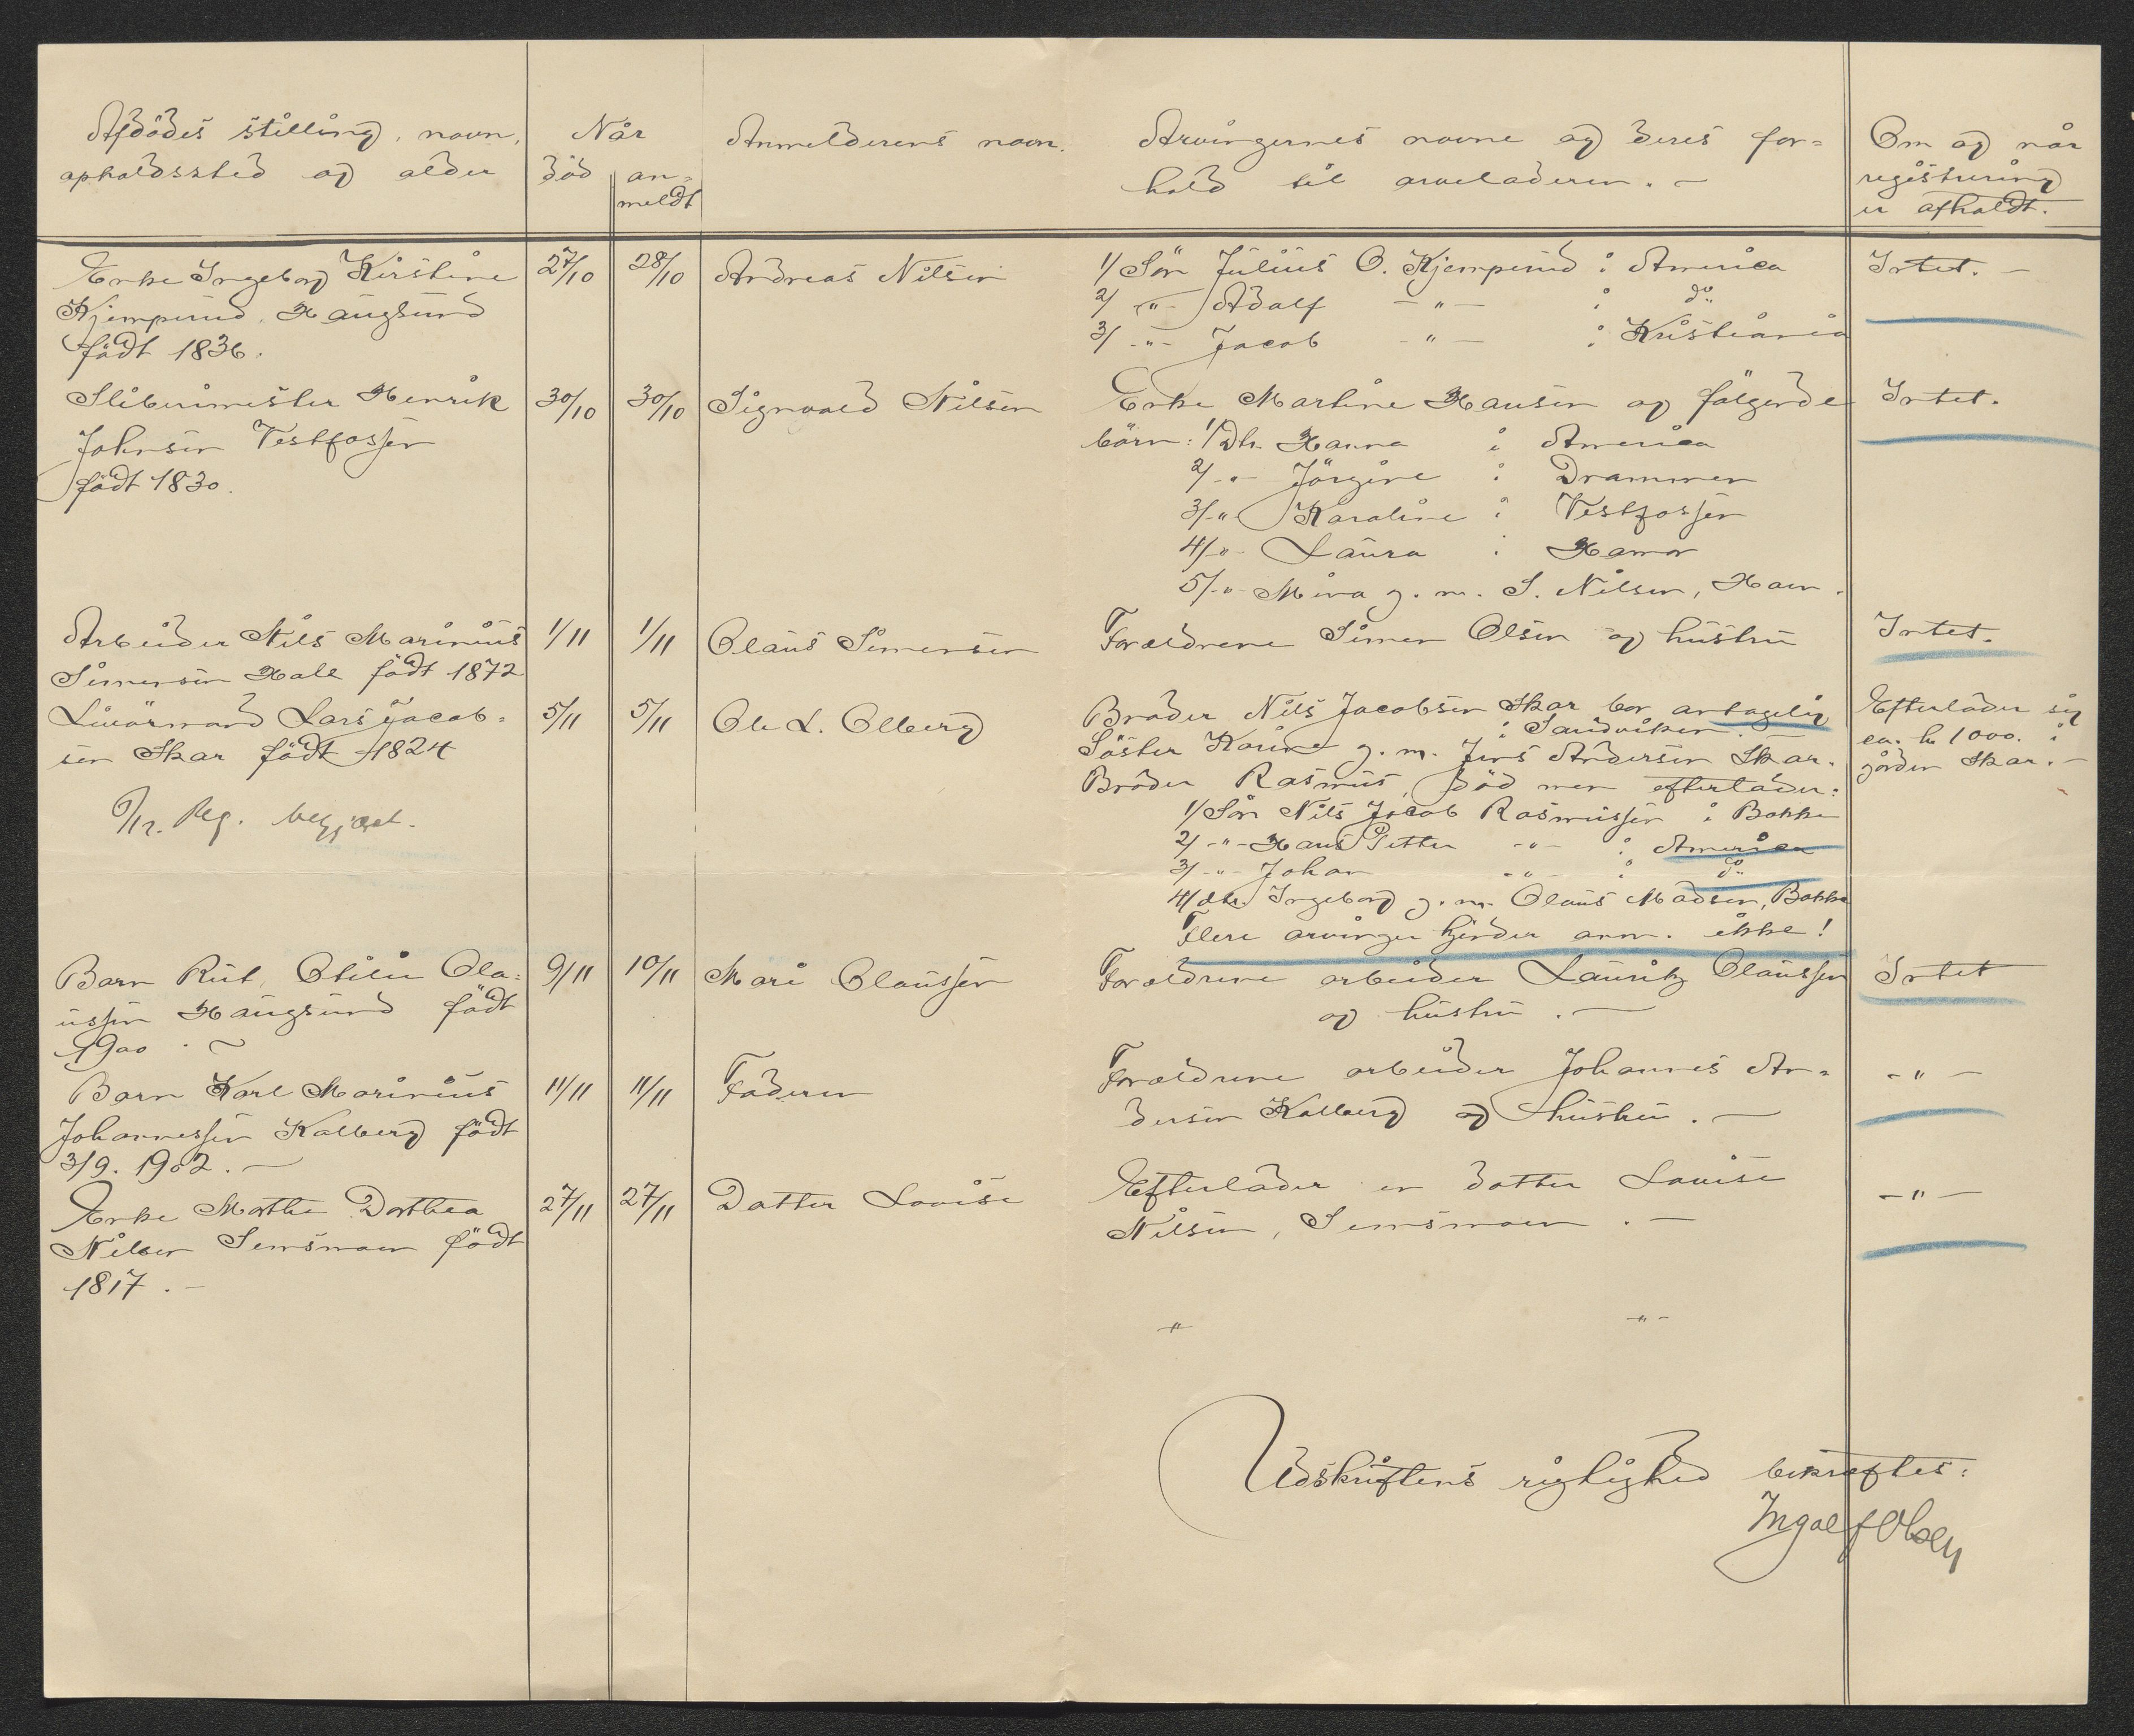 Afdödes stilling, navn,
opholdssted og alder
Når
död
an=
meldt
Anmelderens navn.
Arvingernes navne og deres for=
hold til arveladeren. -
Om og når
registrering
er afholdt.
Enke Ingeborg Kirstine
Kjemperud, Haugsund
födt 1836.
27/10
28/10
Andreas Nilsen
1/ Sön Julius O. Kjemperud i America
2/ -"- Adolf -"- i do
3/ -"- Jacob -"- i Kristiania
Intet. -
Sliberimester Henrik
Johnsen Vestfossen
födt 1830.
30/10
30/10
Signvald Nilsen
Enke Martine Hansen og fölgende
börn: 1/ Dtr. Hanna i America
2/ -"- Jörgine i Drammen
3/ -"- Karoline i Vestfossen
4/ -"- Laura i Hamar
5/ -"- Mina g. m. S. Nilsen, Ham.
Intet.
Arbeider Nils Marinius
Simensen Hals födt 1872
1/11
1/11
Olaus Simensen
Forældrene Simen Olsen og hustru
Intet.
Livörmand Lars Jacob=
sen Skar födt 1824
6/12. Reg. begjært.
5/11
5/11
Ole L. Olberg
Broder Nils Jacobsen Skar bor antagelig
i Sandviken. -
Söster Karine g. m. Jens Andersen Skar.
Broder Rasmus, död men efterlader:
1/ Sön Nils Jacob Rasmussen i Bakke
2/ -"- Hans Petter -"- i America
3/ -"- Johan -"- i do
4/ dtr. Ingeborg g. m. Olaus Madsen, Bakke
Flere arvinger kjender anm. ikke!
Efterlader sig
ca. kr 1000. i
gården Skar. -
Barn Rut Otilie Ola=
ussen Haugsund födt
1900. -
9/11
10/11
Mari Olaussen
Forældrene arbeider Lauritz Olaussen
og hustru. -
Intet
Barn Karl Marinius
Johannessen Kolberg födt
3/9. 1902. -
11/11
11/11
Faderen
Forældrene arbeider Johannes An=
dersen Kolberg og hustru. -
-"-
Enke Mathe Dorthea
Nilsen Semsmoen födt
1817. -
27/11
27/11
Datter Lovise
Efterlader en datter Lovise
Nilsen, Semsmoen. -
-"-
-"- -"-
Udskriftens rigtighed bekræftes:
Ingolf Olsen